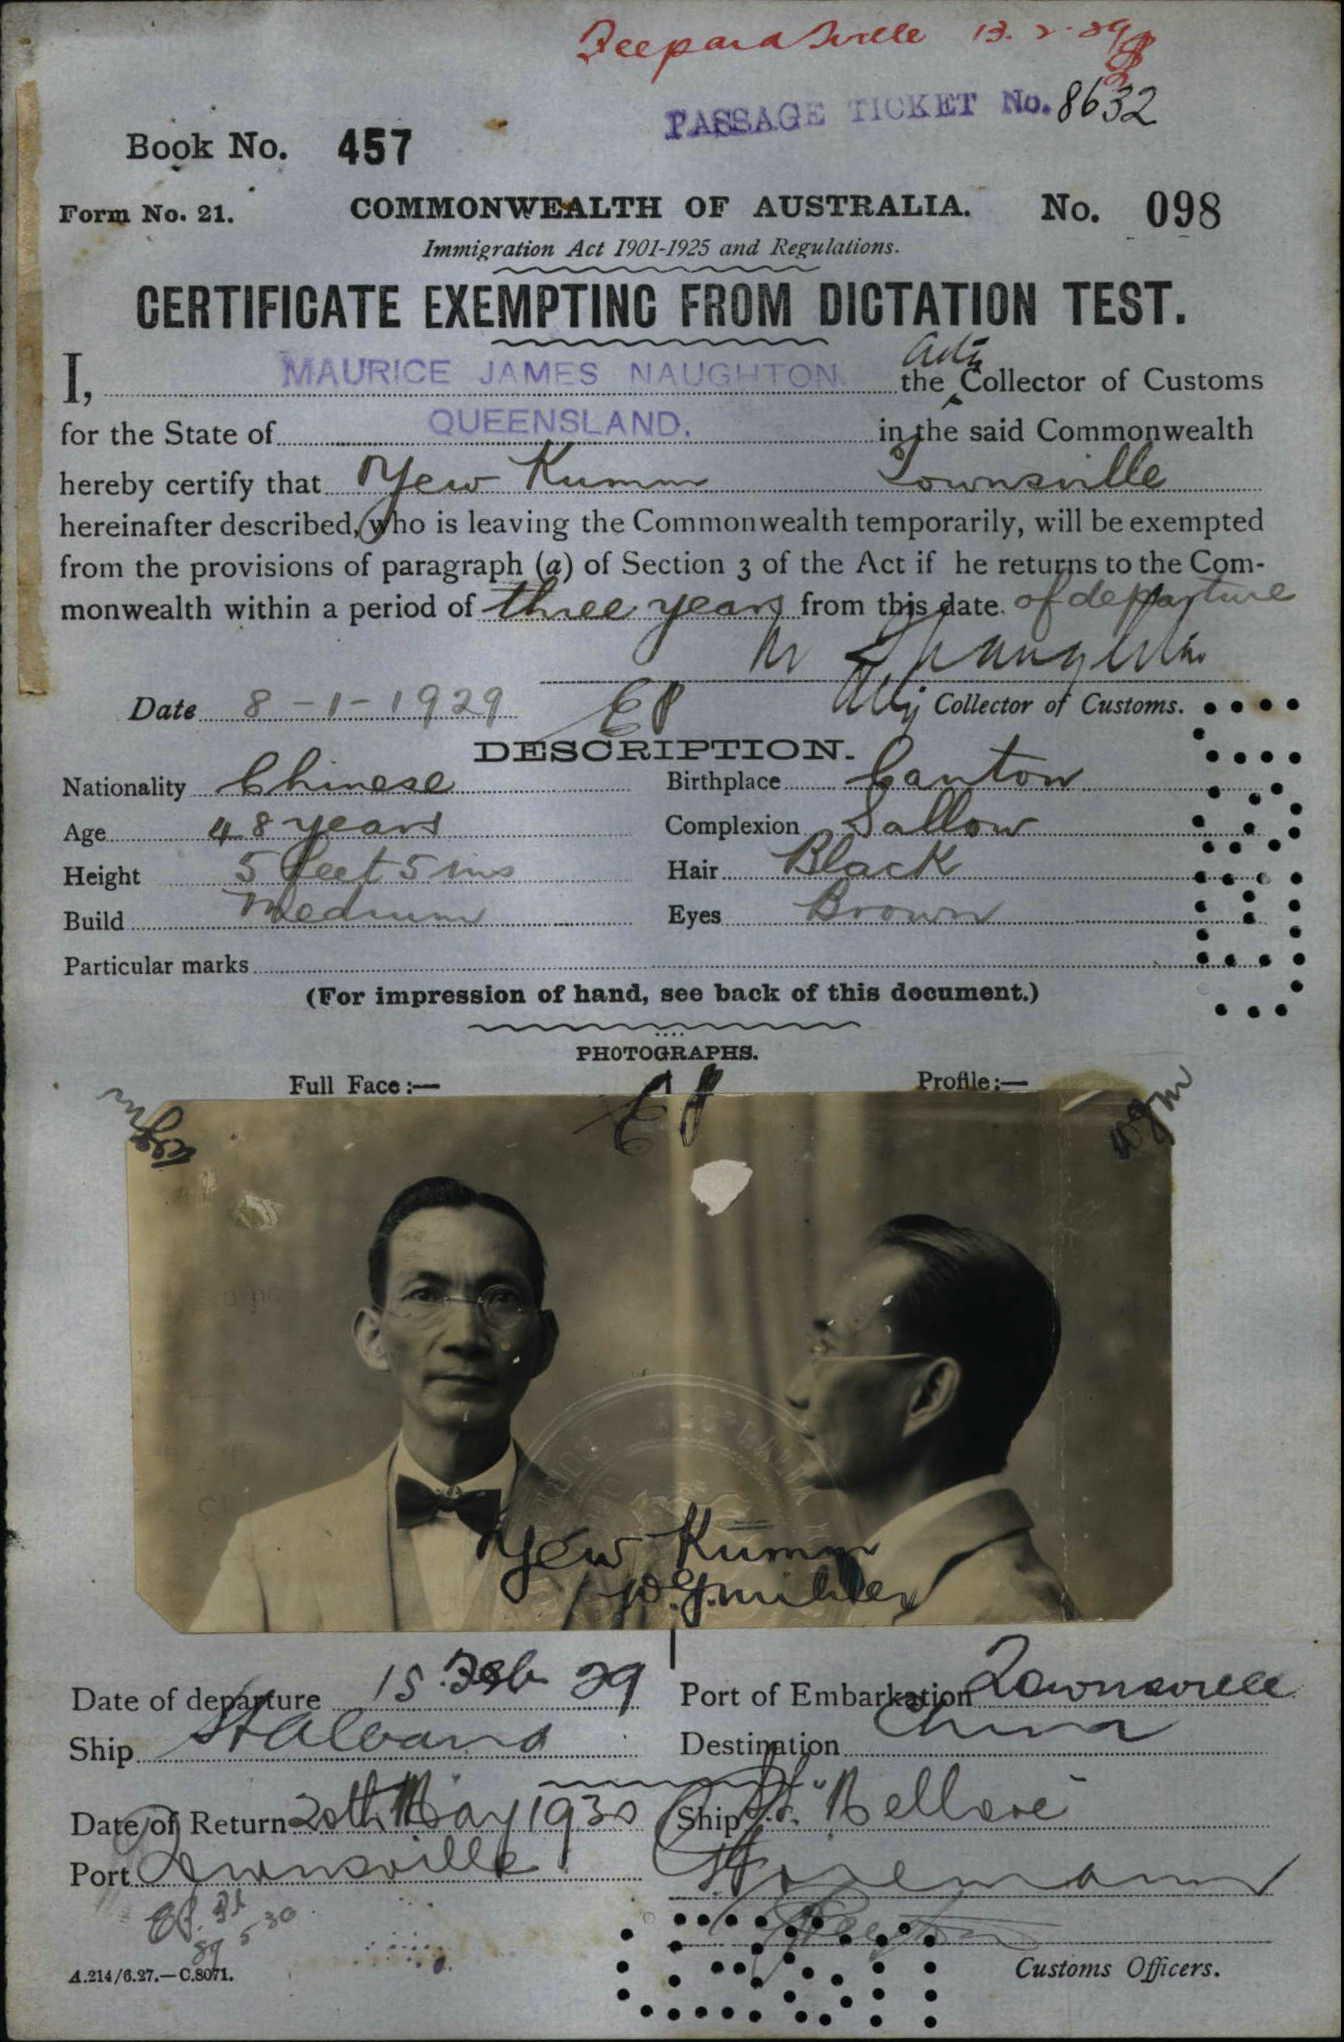 13.2.29
PASSAGE TICKET No. 8632
Book No. 457
Form No. 21. COMMONWEALTH OF AUSTRALIA. No. 098
Immigration Act 1901-1925 and Regulations.
CERTIFICATE EXEMPTING FROM DICTATION TEST.
I, MAURICE JAMES NAUGHTON the Actg Collector of Customs
for the State of QUEENSLAND. in the said Commonwealth
hereby certify that Yew Kumm Townsville
hereinafter described, who is leaving the Commonwealth temporarily, will be exempted
from the provisions of paragraph (a) of Section 3 of the Act if he returns to the Com-
monwealth within a period of three years from this date of departure
M J Naughton
Date 8-1-1929 Actg Collector of Customs.
DESCRIPTION.
Nationality Chinese Birthplace Canton
Age 48 years Complexion Sallow
Height 5 feet 5 ins Hair Black
Build Medium Eyes Brown
Particular marks
(For impression of hand, see back of this document.)
PHOTOGRAPHS.
Full Face :— Profile :—
wgm wgm
Yew Kumm
W.G. Miller
Date of departure 15 Feb 29 Port of Embarkation Townsville
Ship St Albans Destination China
Date of Return 20th May 1930 Ship "Nellore"
Port Townsville
Customs Officers.
A.214/6.27.—C.8071.